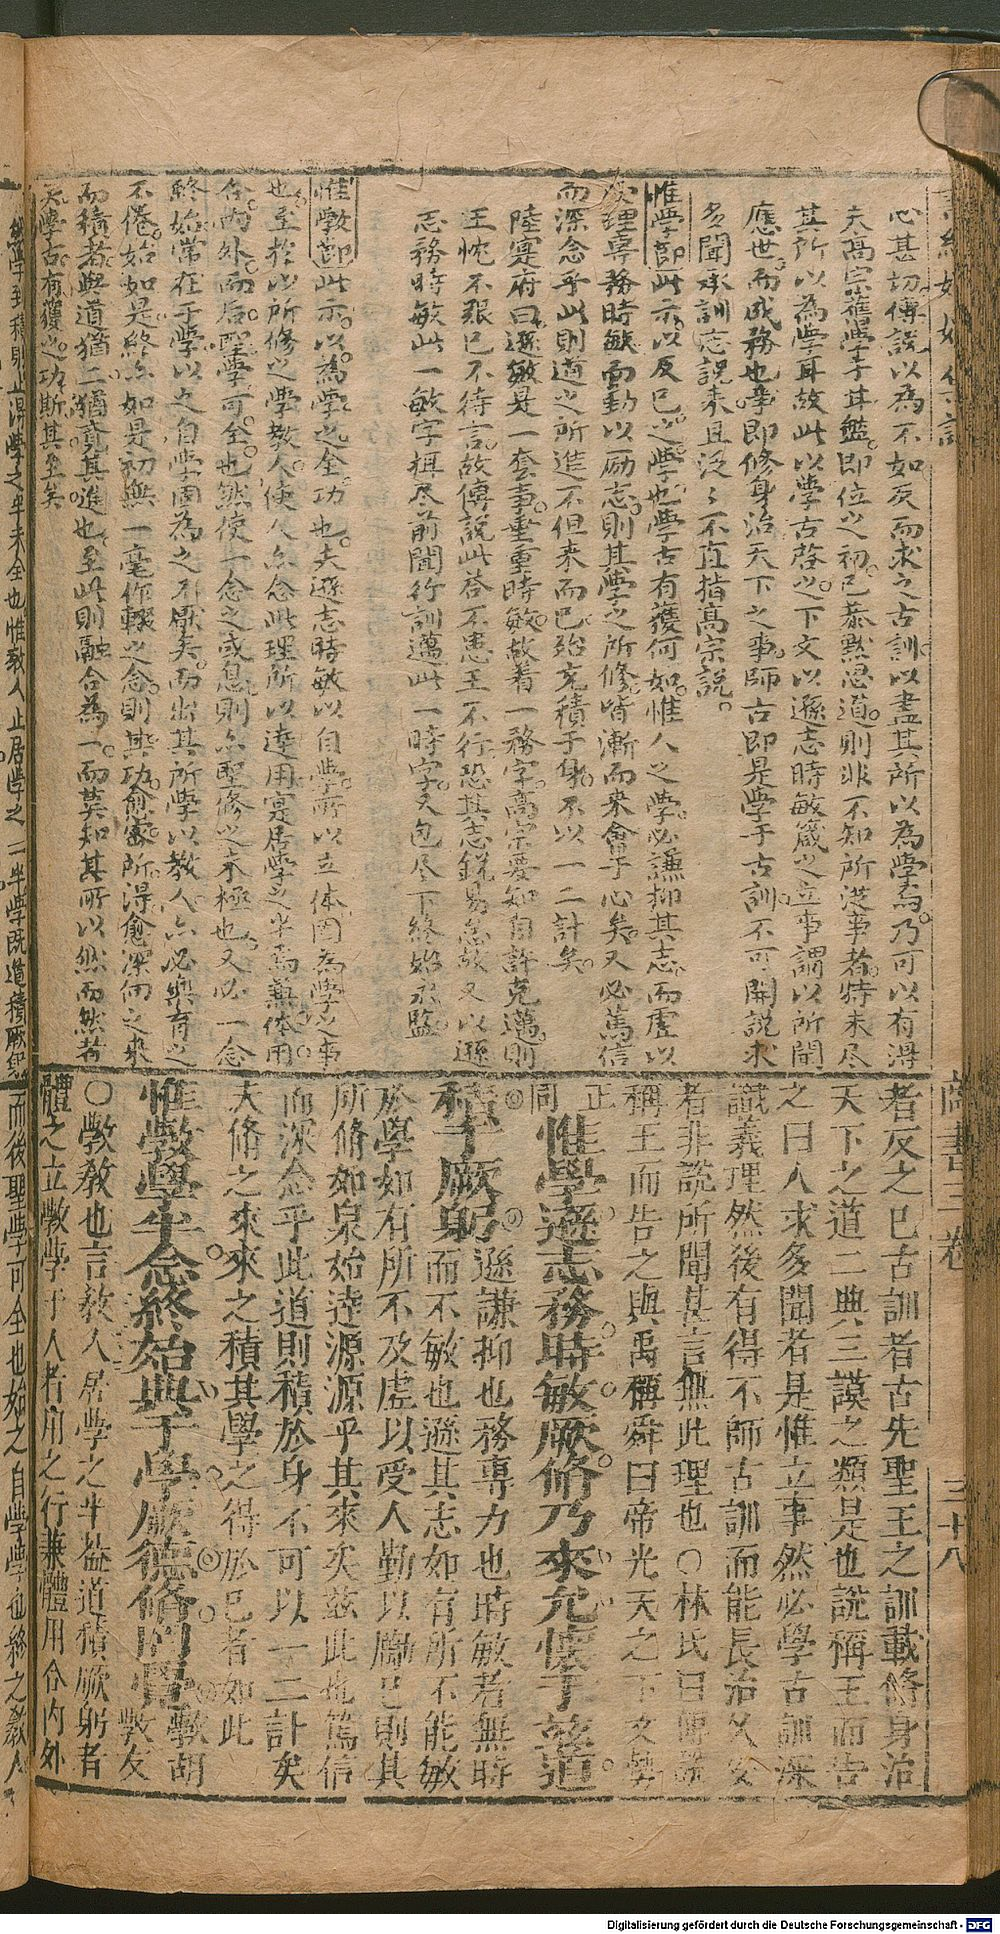 心甚切傅說以為不如反而求之古訓以盡其所以為學焉乃可以有得
夫高宗舊學于甘盤即位之初已恭默思道則非不知所從事者特未尽
其所以為學耳故此以學古啓之下文以遜志時敏箴之立事謂以所聞
應世而成務也事即修身治天下之事師古即是學于古訓不可開說求
多聞承訓志說來且泛〻不直指高宗說
惟學節此示以反已之學也學古有獲何如惟人之學必謙抑其志而虛以
受理專務時敏而勤以勵志則其學之所修皆漸而來會于心矣又必篤信
而深念乎此則道之所進不但來而已殆充積于身不以一二計矣
陸寔府曰遜敏是一套事重重時敏故着一務字高宗要知自許克邁則
王忱不艱已不待言故傅說此荅不患王不行恐其志銳易怠故又以遜
志務時敏此一敏字挕尽前聞行訓邁此一時字又包尽下終始永監
惟斆節此示以為學之全功也夫遜志時敏以自學所以立体固為學之事
也至於以所修之學教人使人亦念此理所以達用寔居學之半焉兼体用
合內外而后聖學可全也然使一念之或息則亦聖修之未極也又必一念
終始常在于學以之自學固為之不厭矣而出其所學以教人亦必與育之
不倦始如是終亦如是初無一毫作輟之念則其功愈密所得愈深向之來
而積者與道猶二猶覚其進也至此則融合為一而莫知其所以然而然者
矣學古有獲之功斯其至矣
商書三卷 三十八
者反之已古訓者古先聖王之訓載修身治
天下之道二典三謨之類是也說稱王而告
之曰人求多聞者是惟立事然必學古訓深
識義理然後有得不師古訓而能長治久安
者非說所聞甚言無此理也〇林氏曰傅說
稱王而告之與禹稱舜曰帝光天之下文勢
正同
惟學遜志務時敏厥脩乃來允懷于茲道
積于厥躬遜謙抑也務專力也時敏者無時
而不敏也遜其志如有所不能敏
於學如有所不及虛以受人勤以勵已則其
所脩如泉始達源源乎其來矣茲此也篤信
而深念乎此道則積於身不可以一二計矣
夫脩之來來之積其學之得於已者如此
惟斆學半念終始典于學厥德脩罔覺斆胡
教反
〇斆教也言教人居學之半蓋道積厥躬者
體之立斆學于人者用之行兼體用合內外
而後聖學可全也始之自學學也終之教人